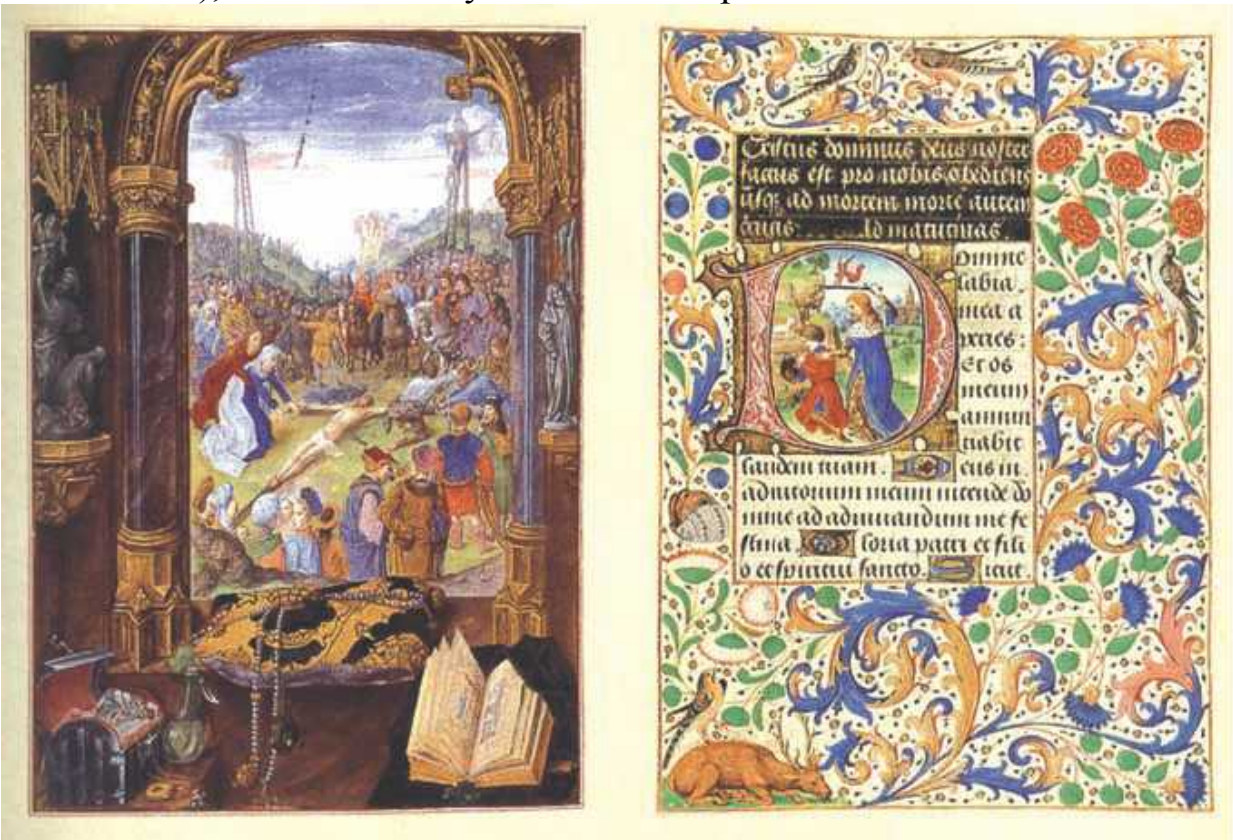 Cristus dominus deus noster
factus est pro nobis obediens
usq; ad mortem morte autem
crucis. Ad matutinas.
Domine
labia
mea a
peries:
Et os
meum
annun
tiabit
laudem tuam. Deus in
adiutorium meum intende do
mine ad adiuuandum me fe
stina. Gloria patri et fili
o et spiritui sancto. Sicut